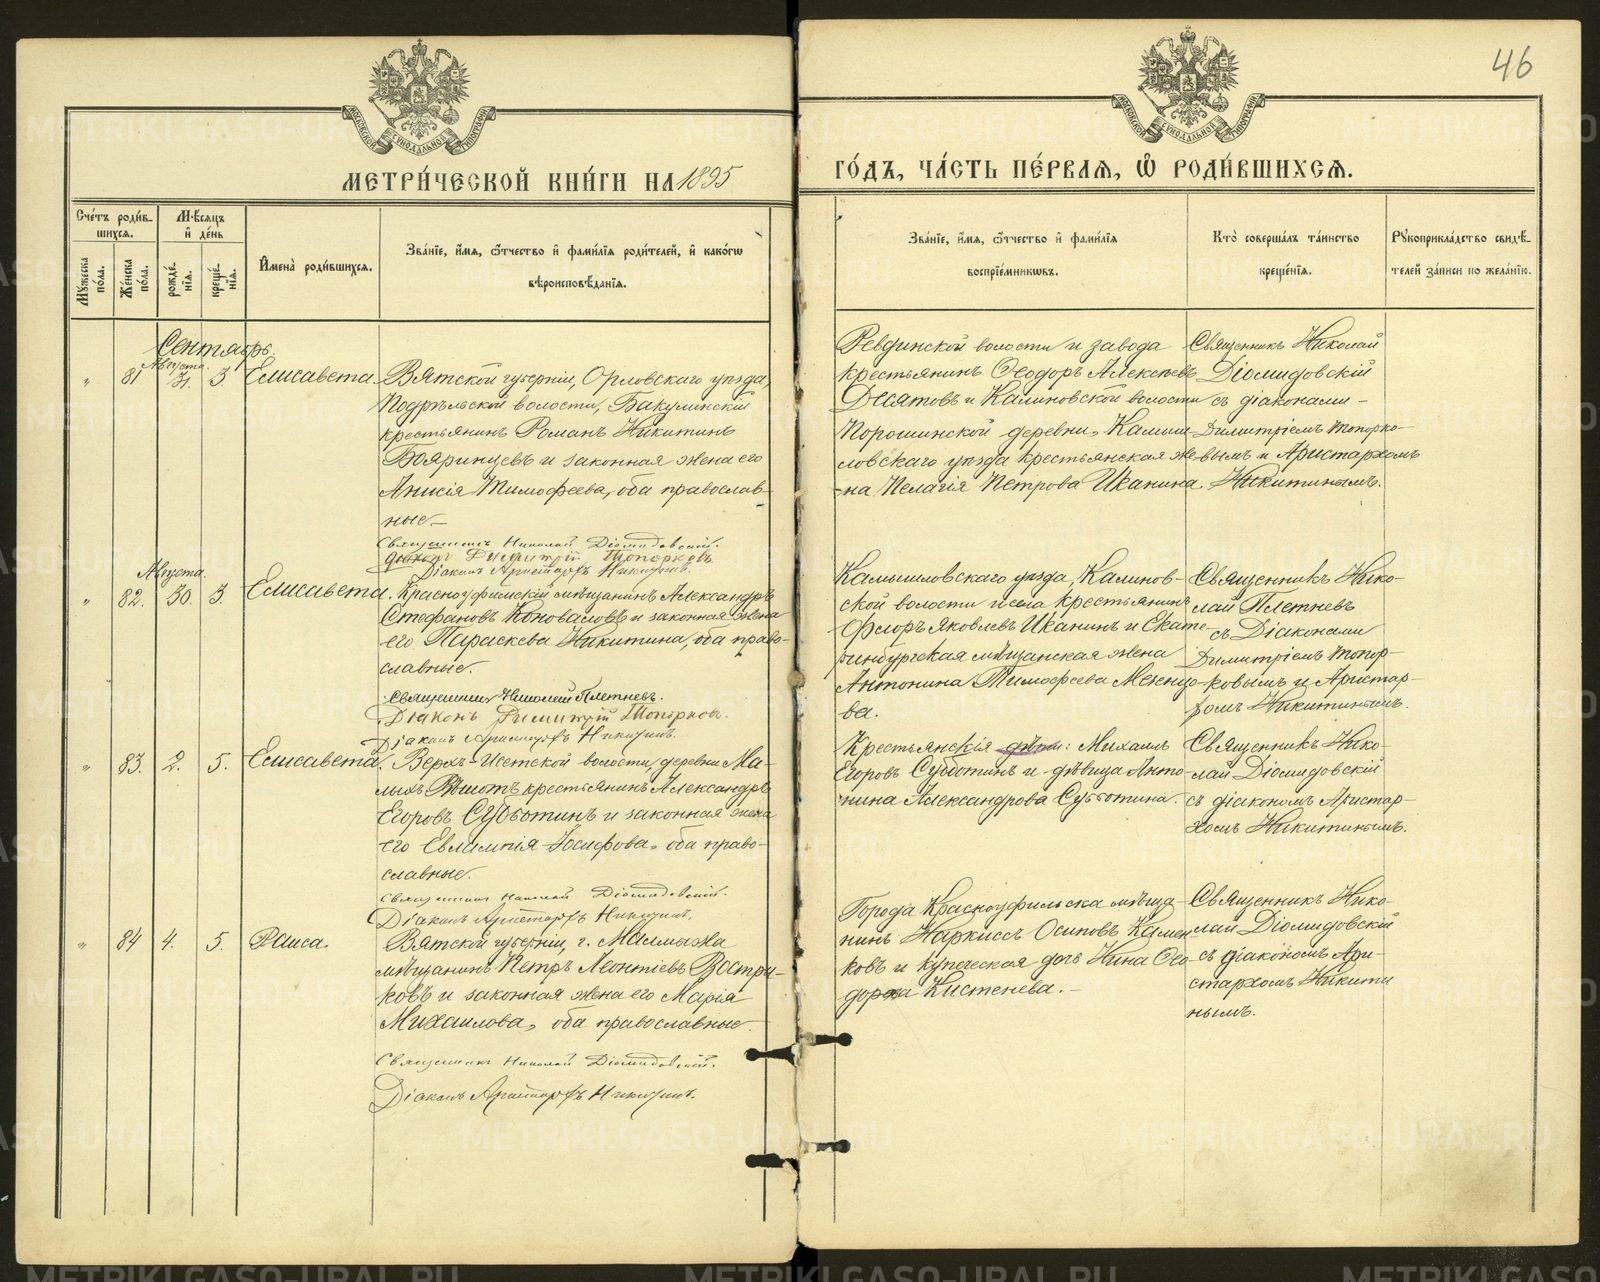 46
МЕТРИ́ЧЕСКОЙ КНИ́ГИ НА 1895
ГО́ДЪ, ЧА́СТЬ ПЕ́РВАЯ, Ѽ РОДИ́ВШИХСЯ.
Сче́тъ роди́в-
шихся.
Мѣсяцъ
и́ де́нь
Мꙋжеска по́ла.
Же́нска по́ла.
рожде́-
нїя.
креще́-
нїя.
И҆мена̀ роди́вшихся.
Зва́нїе, и҆́мя, ѻ҆́тчество и҆ фами́лїя роди́телей, и҆ како́гѡ
вѣроисповѣ́данїя.
Зва́нїе, и҆́мя, ѻ҆́тчество и҆ фами́лїя
воспрїе́мникѡвъ.
Кто̀ соверша́лъ та́инство
креще́нїя.
Рꙋкоприкла́дство свидѣ́-
телей за́писи по жела́нїю.
Сентябрь.
Августа
" 81 31. 3 Елисавета.
Вятской губернiи, Орловскаго уѣзда,
Подрѣльской волости, Бакулинскiй
крестьянинъ Романъ Никитинъ
Бояринцевъ и законная жена его
Анисiя Тимофеева, оба православ-
ные.-
Священникъ Николай Дiомидовскiй.
Дiаконъ Димитрiй Топорковъ.
Дiаконъ Аристархъ Никитинъ.
Ревдинской волости и завода
крестьянинъ Ѳеодоръ Алексѣевъ
Десятовъ и Калиновской волости
Порошинской деревни, Камыш-
ловскаго уѣзда крестьянская же
-на Пелагiя Петрова Иканина
Священникъ Николай
Дiомидовскiй
съ дiаконами-
Димитрiемъ Топорко-
вымъ и Аристархомъ
Никитинымъ.
Августа
" 82. 30. 3. Елисавета.
Красноуфимскiй мѣщанинъ Александръ
Стефановъ Коноваловъ и законная жена
его Параскева Никитина, оба право-
славные.
Священникъ Николай Плетневъ.
Дiаконъ Димитрiй Топорковъ.
Дiаконъ Аристархъ Никитинъ.
Камышловскаго уѣзда, Калинов-
ской волости и села крестьянинъ
Флоръ Яковлевъ Иканинъ и Екате-
ринбургская мѣщанская жена
Антонина Тимофеева
ва.
Священникъ Нико-
лай Плетневъ
съ Дiаконами
Димитрiемъ Топор-
ковымъ и Аристар-
хомъ Никитинымъ.
" 83. 2. 5. Елисавета.
Верхъ-Исетской волости, деревни Ма-
лыхъ Рѣшотъ крестьянинъ Александръ
Егоровъ Субботинъ и законная жена
его Евлампiя Iосифова, оба право-
славные.
Священникъ Николай Дiомидовскiй.
Дiаконъ Аристархъ Никитинъ.
Крестьянскiя дѣти: Михаилъ
Егоровъ Субботинъ и дѣвица Анто-
нина Александрова Субботина.
Священникъ Нико-
лай Дiомидовскiй
съ дiакономъ Аристар-
хомъ Никитинымъ.
" 84 4. 5. Раиса.
Вятской губернiи, г. Малмыжа
мѣщанинъ Петръ Леонтiевъ Востри-
ковъ и законная жена его Марiя
Михаилова, оба православные.
Священникъ Николай Дiомидовскiй.
Дiаконъ Аристархъ Никитинъ.
Города Красноуфимска мѣща-
нинъ Наркиссъ Осиповъ Камен-
ковъ и купеческая дочь Нина Ѳео-
дорова Кистенева.-
Священникъ Нико-
лай Дiомидовскiй
съ дiакономъ Ари-
стархомъ Никити
нымъ.
METRIKI.GASO-URAL.RU